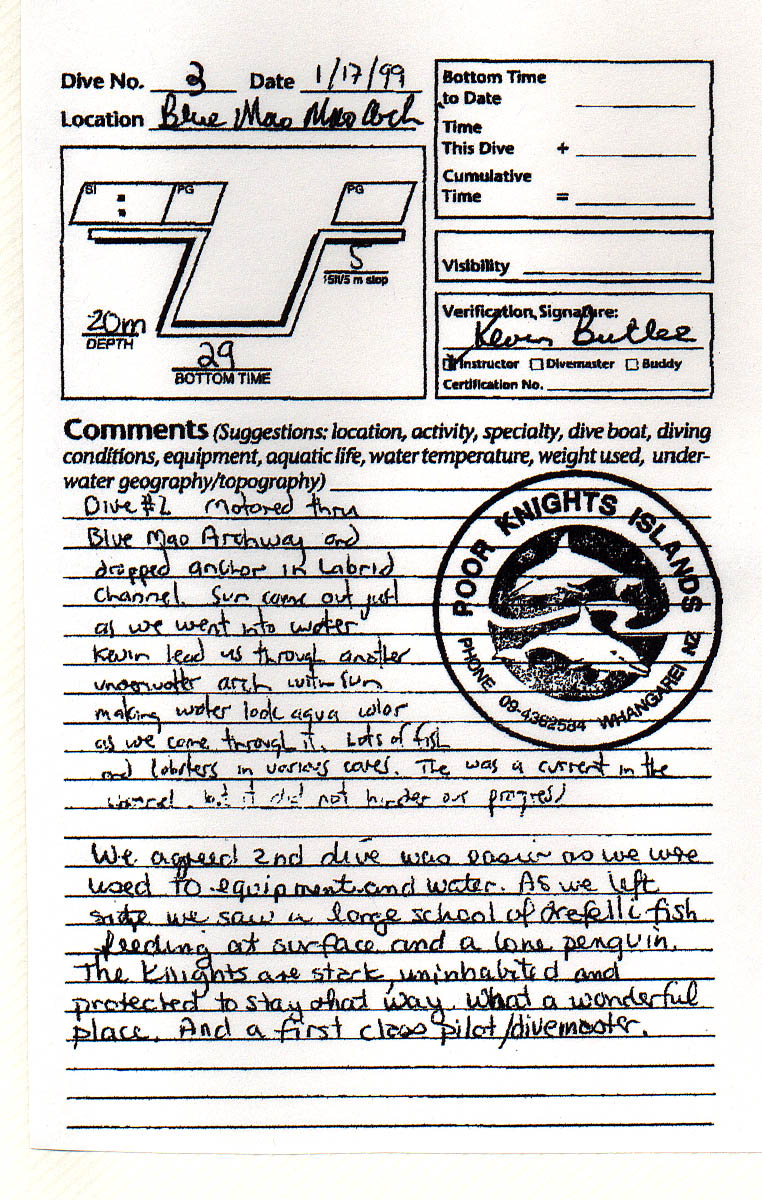 Dive No. 3 Date 1/17/99
Location Blue Mao Mao Arch
Bottom Time
to Date
Time
This Dive +
Cumulative
Time =
SI : PG
PG
5
15ft/5 m stop
20m
DEPTH
29
BOTTOM TIME
Visibility
Verification Signature:
Kevin Butlee
Instructor Divemaster Buddy
Certification No.
Comments (Suggestions: location, activity, specialty, dive boat, diving
conditions, equipment, aquatic life, water temperature, weight used, under-
water geography/topography)
Dive #2 Motored thru
Blue Mao Archway and
dropped anchor in Labrid
Channel. Sun came out just
as we went into water
Kevin lead us through another
underwater arch with sun
making water look aqua color
as we come through it. Lots of fish
and lobsters in various caves. The was a current in the
channel, but it did not hinder our progress
POOR KNIGHTS ISLANDS
PHONE 09-4362584 WHANGAREI NZ
We agreed 2nd dive was easier as we were
used to equipment and water. As we left
we saw a large school of trefelli fish
feeding at surface and a lone penguin.
The Knights are stark, uninhabited and
protected to stay that way. What a wonderful
place. And a first class pilot/divemaster.